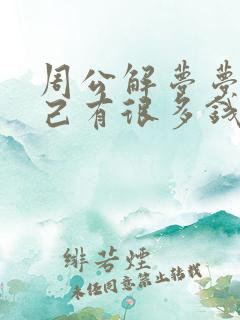 周公解梦梦
己有很多钱
绯若烟
未经同意禁止转载